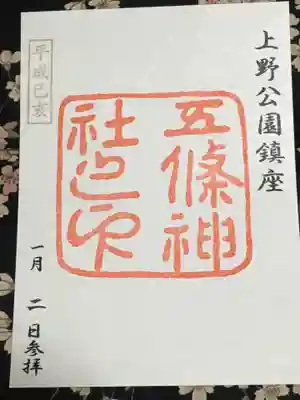 上野公園鎮座
五條神
社之印
平成己亥
一月 二 日参拝